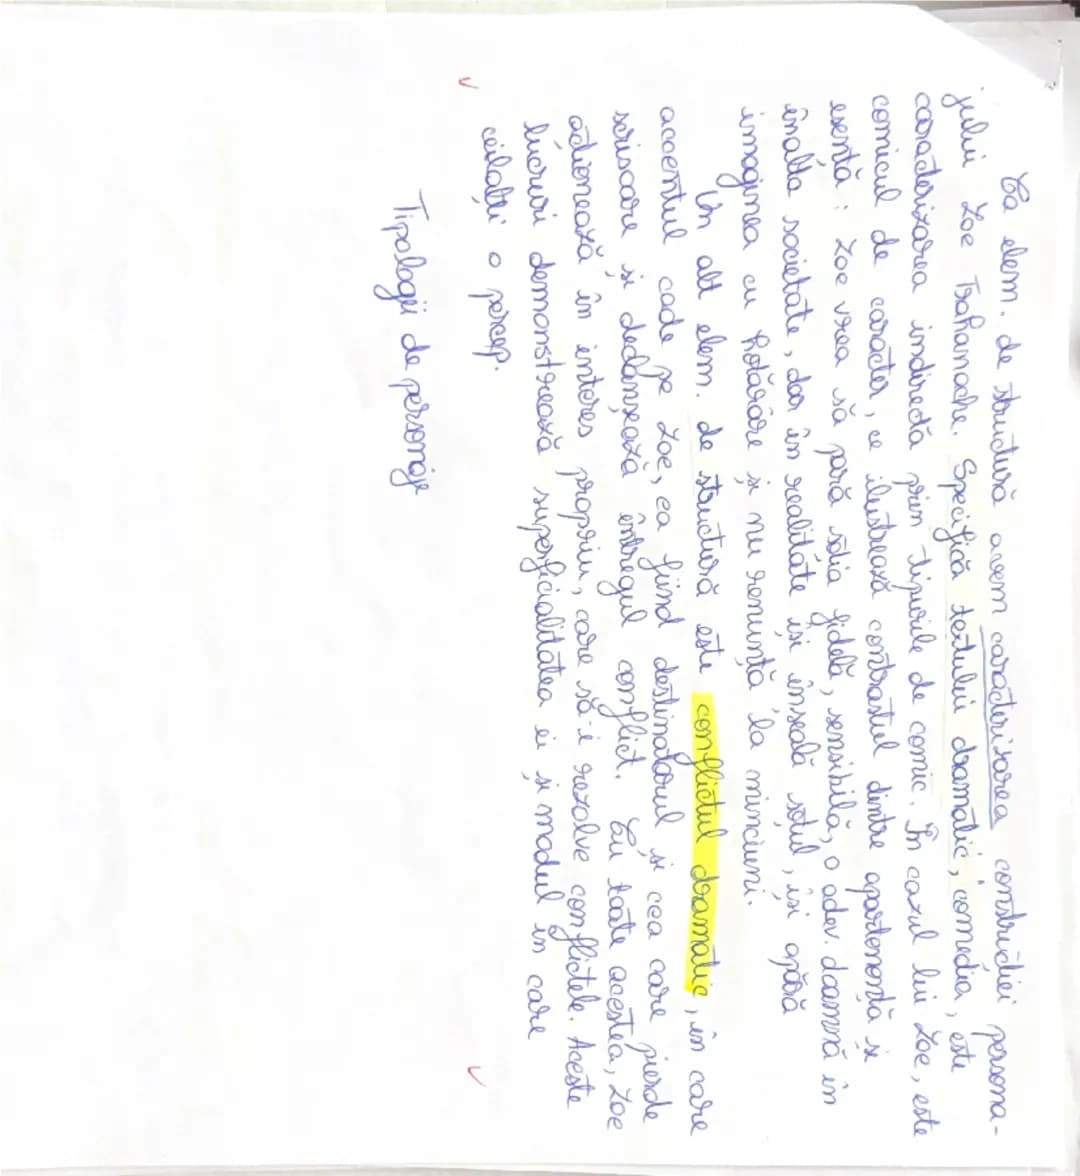 Ca elem. de structură avem caracterizarea construcției persona-
jului Zoe Trahanache. Specifică textului dramatic, comedia, este
caracterizarea indirectă prin tipurile de comic. În cazul lui Zoe, este
comicul de caracter, ce ilustrează contrastul dintre aparenență și
esență: Zoe vrea să pară soția fidelă, sensibilă, o adev. doamnă în
înalta societate, dar în realitate își înșeală soțul, își apără
imaginea cu hotărâre și nu renunță la minciuni.
Un alt elem. de structură este conflictul dramatic, în care
accentul cade pe Zoe, ea fiind destinatarul și cea care pierde
scrisoare și declanșează întregul conflict. Cu toate acestea, Zoe
acționează în interes propriu, care să-i rezolve conflictele. Aceste
lucruri demonstrează superficialitatea ei și modul în care
ceilalți o percep.
Tipologii de personaje